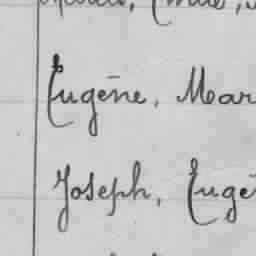 Eugène, Mar
Joseph, Eugè